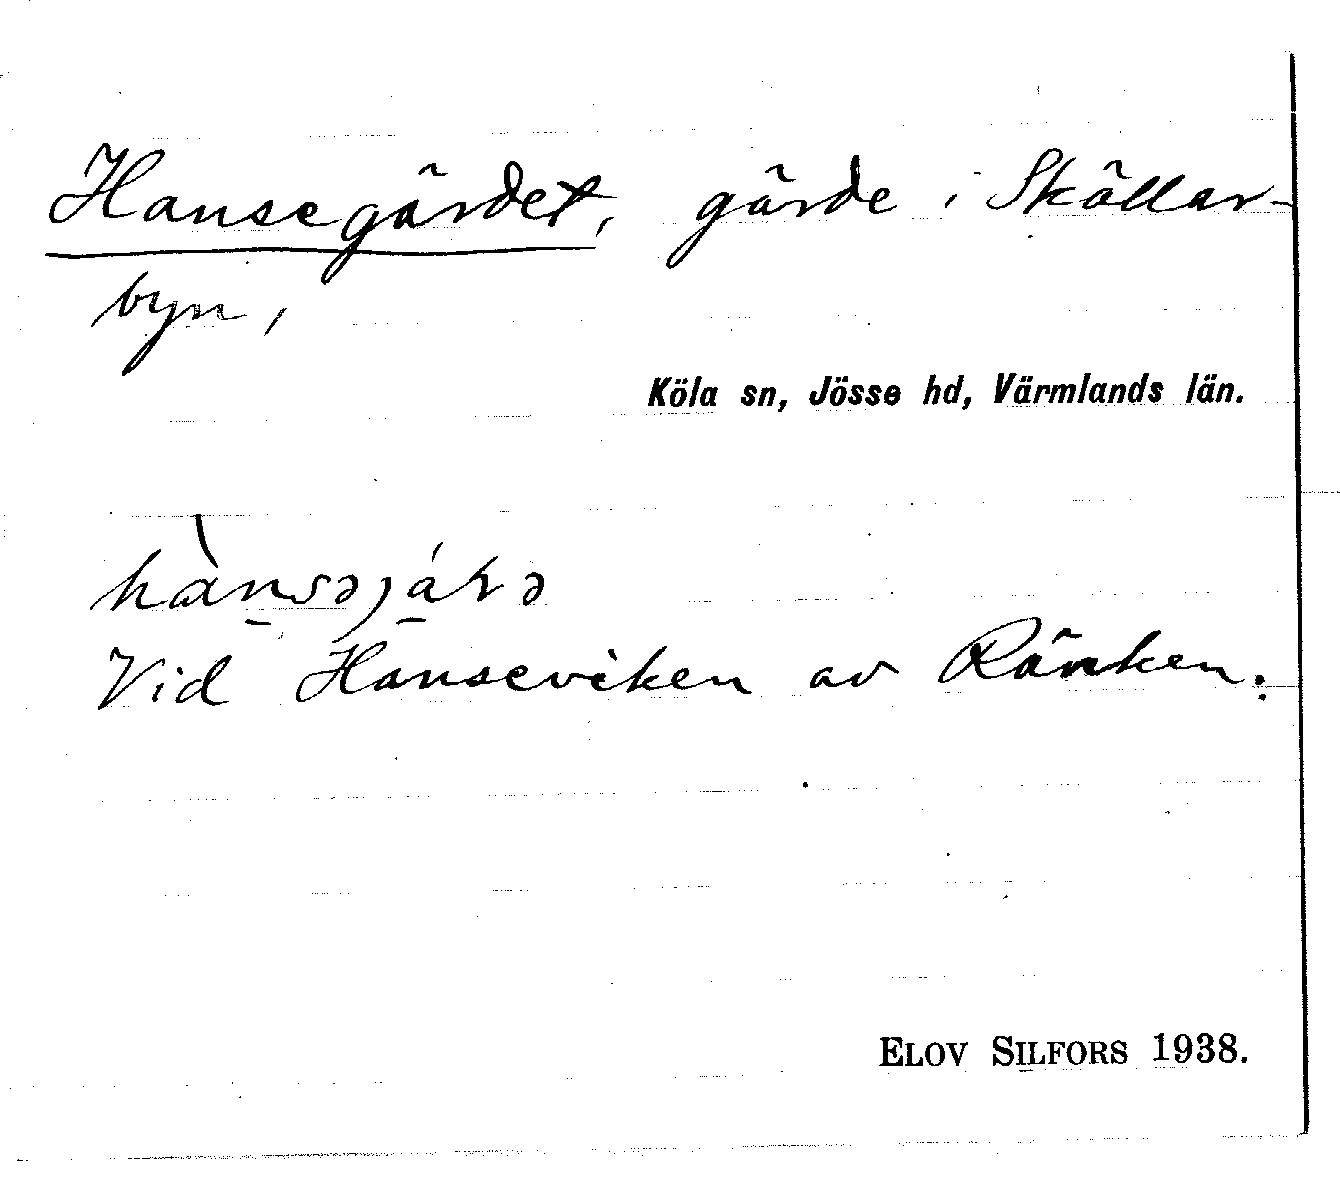 Hansegärdet, gärde i Skällar-
byn,
Köla sn, Jösse hd, Värmlands län.
Vid Hanseviken av Ränken.
ELOV SILFORS 1938.